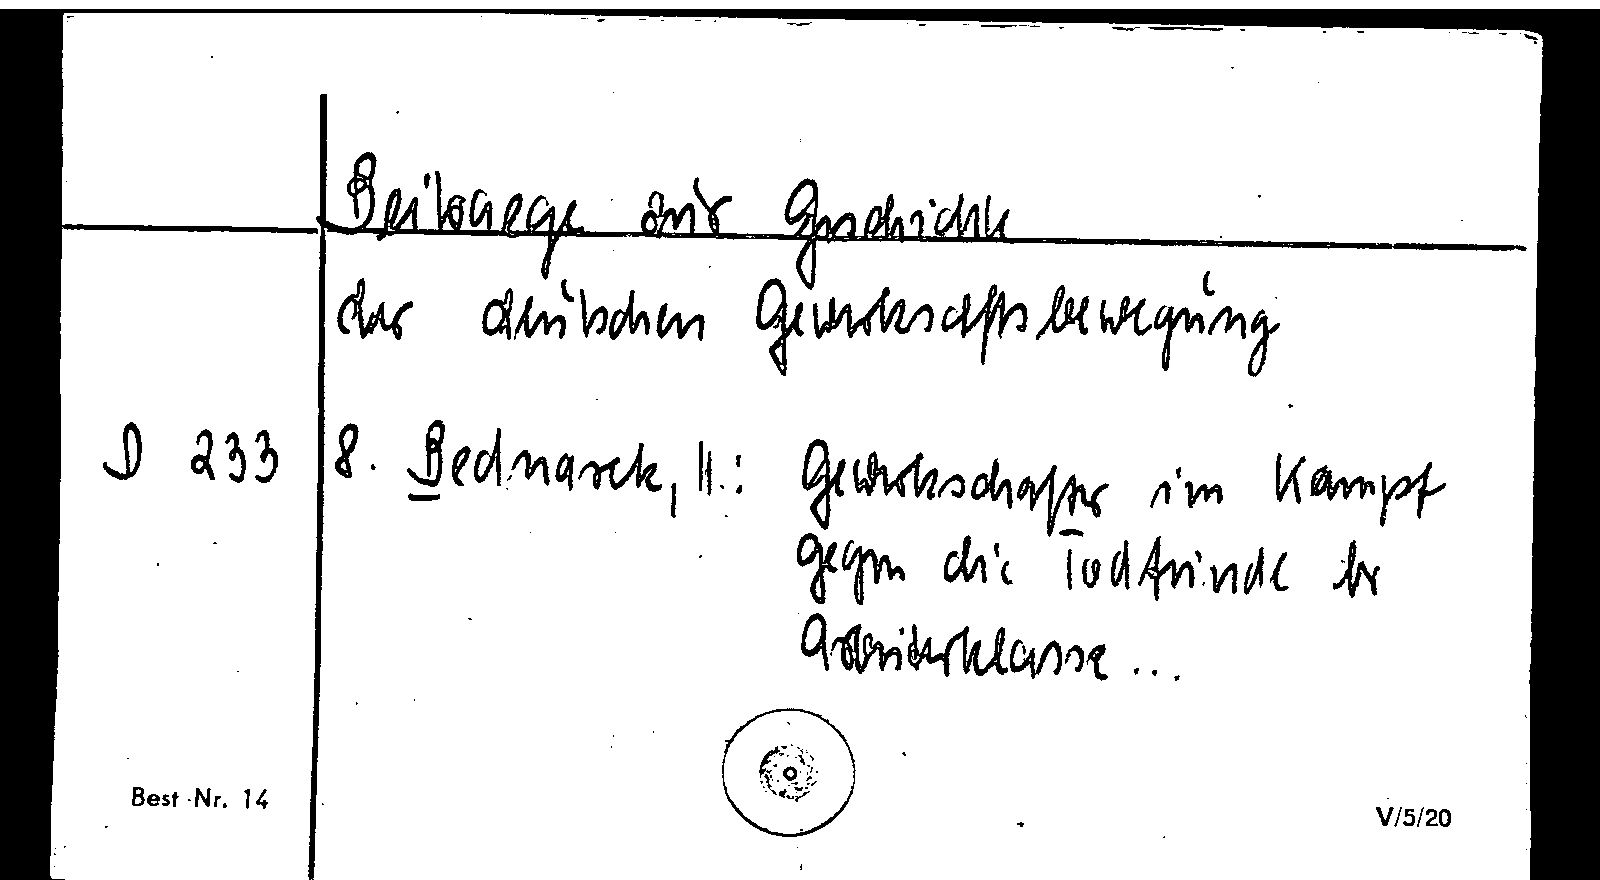 Beitraege zur Geschichte
der deutschen Gewerkschaftsbewegung
D 233 8. Bednareck, H.: Gewerkschafter im Kampf
gegen die Todfeinde der
Arbeiterklasse...
Best.-Nr. 14 V/5/20